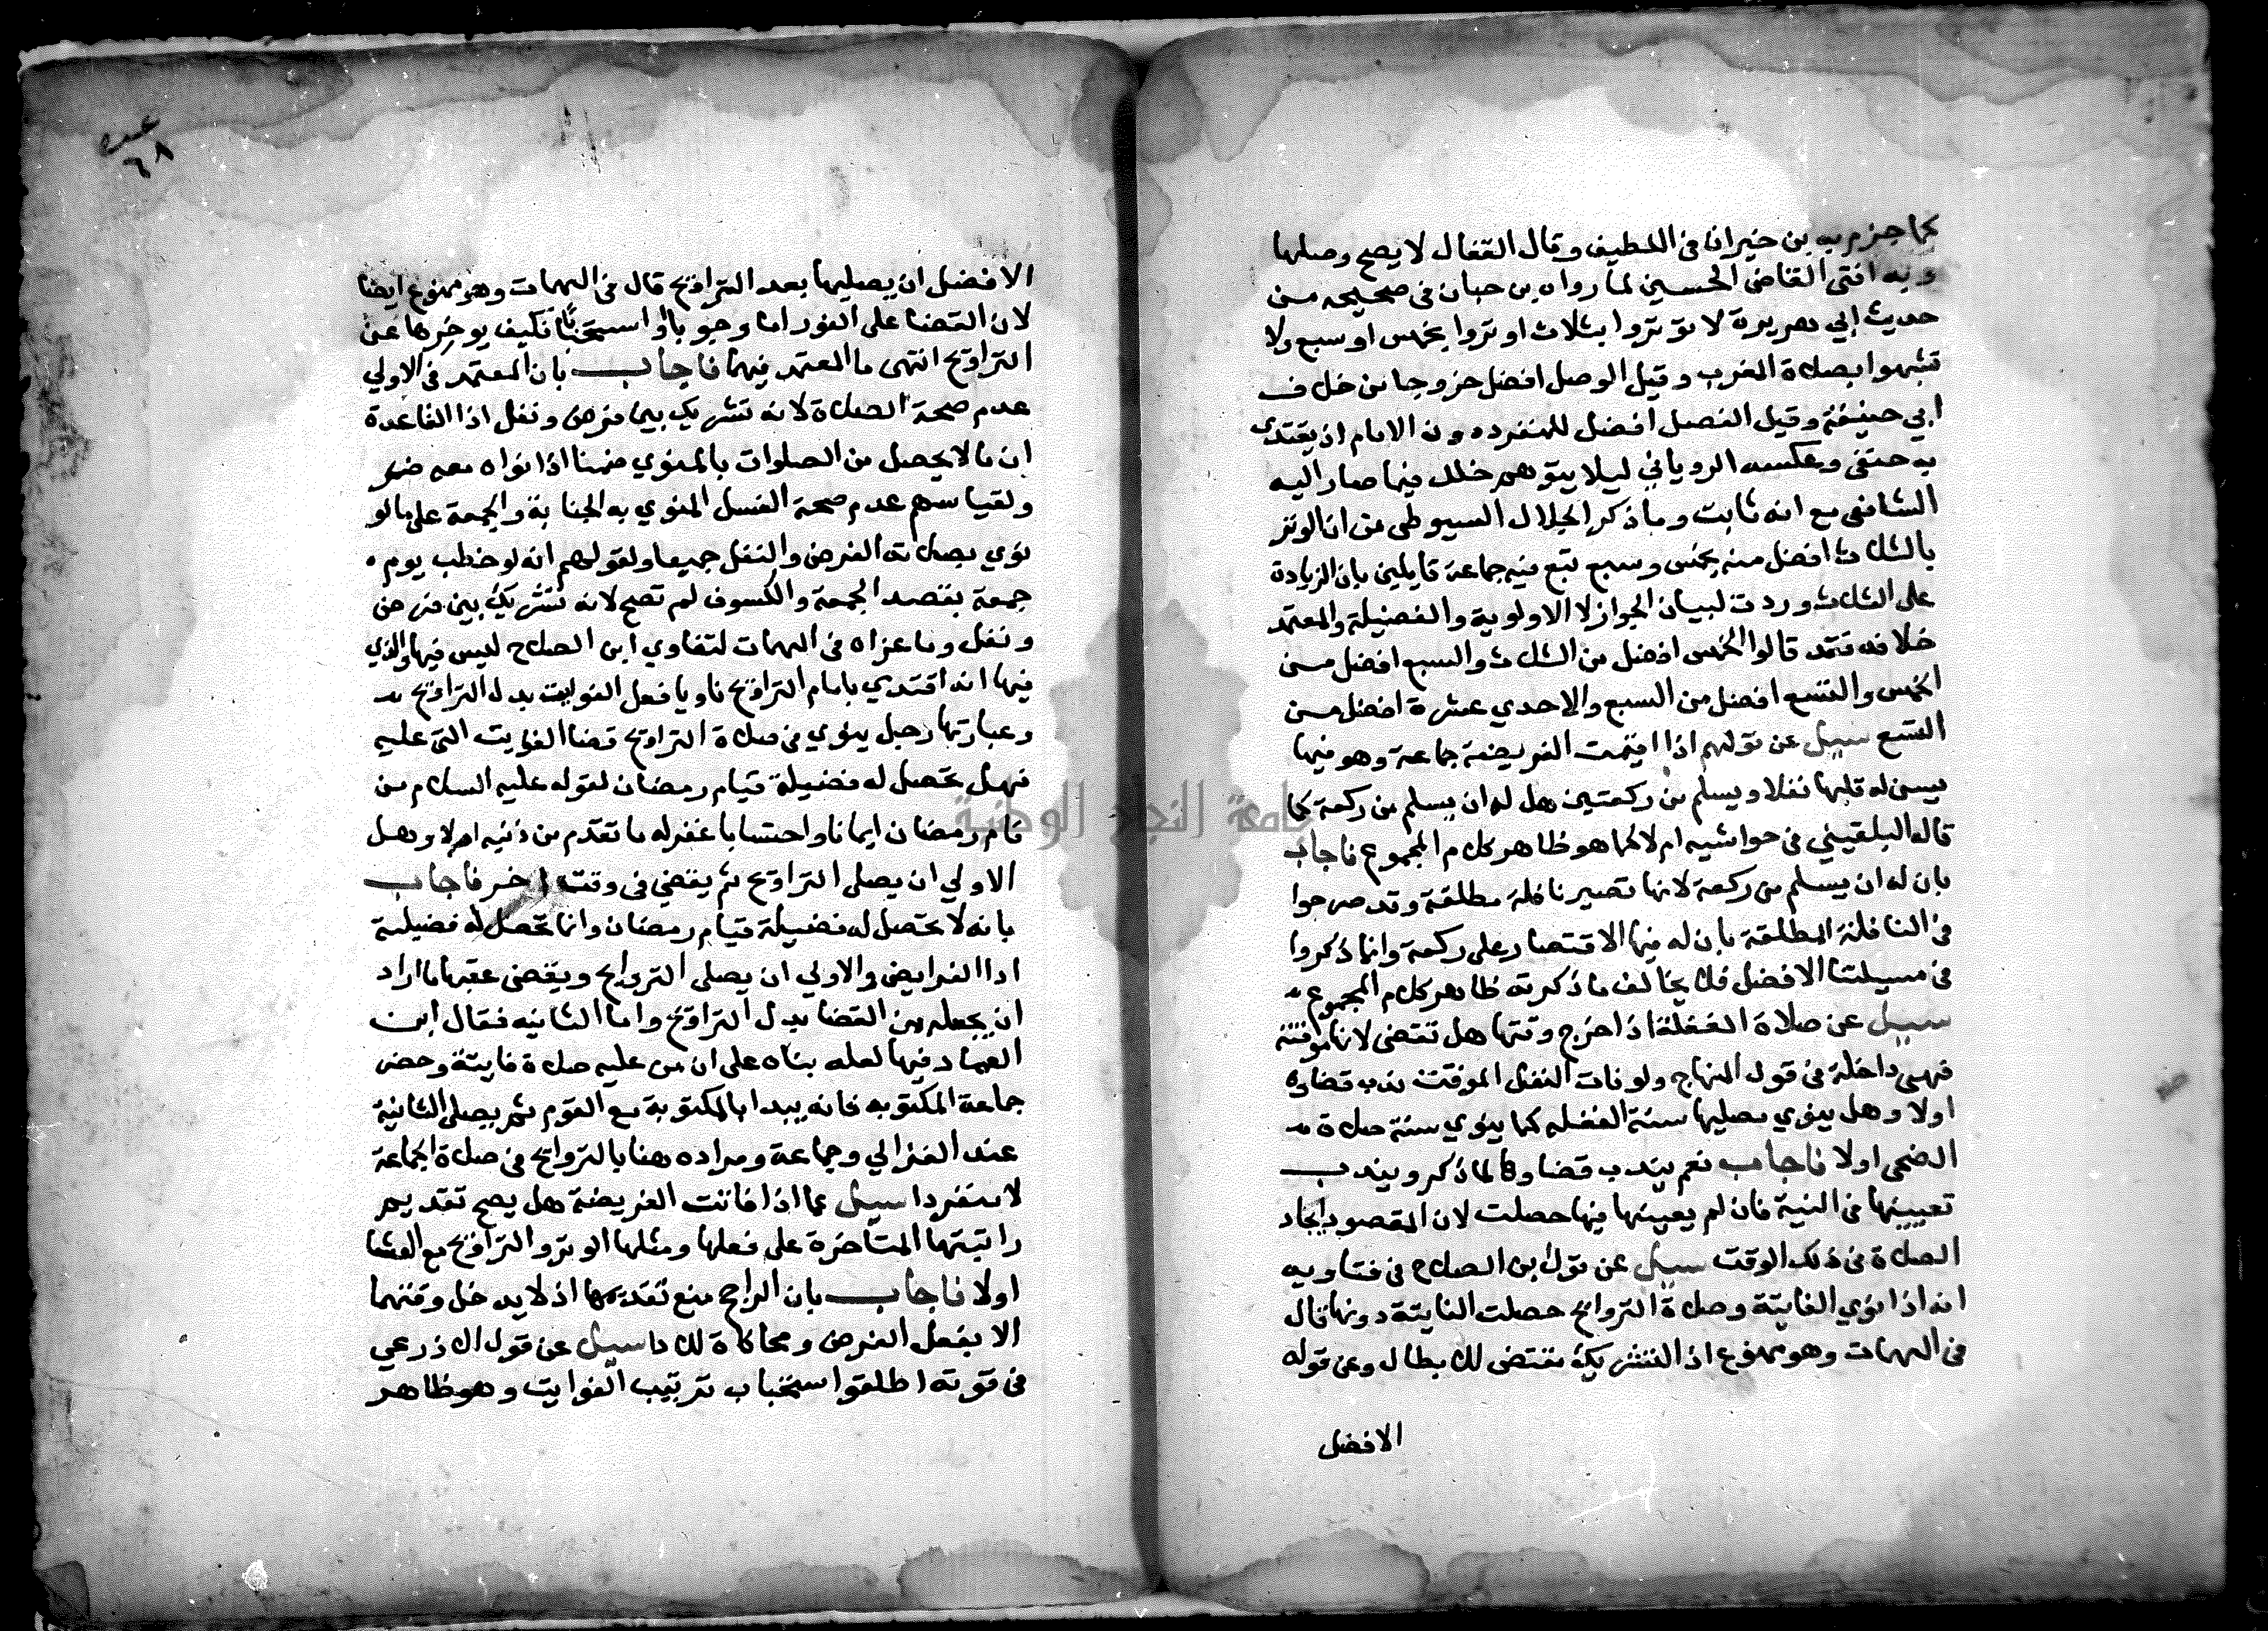 كما جزم به بن خيران في اللطيف وقال القفال لا يصح وصلها
وبه افتى القاضي الحسين لما رواه بن حبان في صحيحه من
حديث ابي هريرة لا توتروا بثلاث اوتروا بخمس او سبع ولا
تشبهوا بصلاة المغرب وقيل الوصل افضل خروجا من خلاف
ابي حنيفة وقيل الفصل افضل للمنفرد دون الامام اذ يقتدي
به حنفي وعكسه الروياني ليلا يتوهم خلل فيما صار اليه
الشافعي مع انه ثابت وما ذكر الجلال السيوطي من ان الوتر
بالثلاث افضل منه بخمس وسبع تبع فيه جماعة قايلين بان الزيادة
على الثلاث وردت لبيان الجواز لا الاولوية والفضيلة والمعتمد
خلافه فقد قالوا الخمس افضل من الثلاث والسبع افضل من
الخمس والتسع افضل من السبع والاحدي عشرة افضل من
التسع سيل عن قولهم اذا اقيمت الفريضة جماعة وهو فيها
يسن له قلبها نفلا ويسلم من ركعتين هل له ان يسلم من ركعة كما
قاله البلقيني في حواشيه ام لا كما هو ظاهر كلام المجموع فاجاب
بان له ان يسلم من ركعة لانها تصير نافلة مطلقة وقد صرحوا
في النافلة المطلقة بان له فيها الاقتصار على ركعة وانما ذكروا
في مسيلتنا الافضل فلا يخالف ما ذكرته ظاهر كلام المجموع
سيل عن صلاة الغفلة اذا خرج وقتها هل تقضى لانها موقتة
فهي داخلة في قول المنهاج ولو فات النفل الموقت ندب قضاوه
اولا وهل ينوي مصليها سنة الغفله كما ينوي سنة صلاة
الضحى اولا فاجاب نعم يندب قضاوها لما ذكر ويندب
تعيينها في النية فان لم يعينها فيها حصلت لان المقصود ايجاد
الصلاة في ذلك الوقت سيل عن قول بن الصلاح في فتاويه
انه اذا نوي الفايتة وصلاة التروايح حصلت الفايتة دونها قال
في المهمات وهو ممنوع اذ التشريك مقتض للابطال وعن قوله
الافضل
عده
٦٨
الافضل ان يصليها بعد التراويح قال في المهمات وهو ممنوع ايضا
لان القضا على الفور اما وجوبا او استحبابا فكيف يوخرها عن
التراويح انتهى ما المعتمد فيهما فاجاب بان المعتمد في الاولي
عدم صحة الصلاة لانه تشريك بين فرض ونفل اذا القاعدة
ان ما لا يحصل من الصلوات بالمنوي ضمنا اذا نواه معه ضر
ولقياسهم عدم صحة الغسل المنوي به الجنابة والجمعة على ما لو
نوي بصلاته الفرض والنفل جميعا ولقولهم انه لو خطب يوم
جمعة بقصد الجمعة والكسوف لم تصح لانه تشريك بين فرض
ونفل وما عزاه في المهمات لفتاوي ابن الصلاح ليس فيها والذي
فيها انه اقتدي بامام التراويح ناويا فعل الفوايت بدل التراويح
وعبارتها رجل ينوي في صلاة التراويح قضا الفوايت التي عليه
فهل تحصل له فضيلة قيام رمضان لقوله عليه السلام من
قام رمضان ايمانا واحتسابا غفر له ما تقدم من ذنبه ام لا وهل
الاولي ان يصلي التراويح ثم يقضي في وقت اخر فاجاب
بانه لا تحصل له فضيلة قيام رمضان وانما تحصل له فضيلة
ادا الفرايض والاولي ان يصلي التروايح ويقضي عقبها ما اراد
ان يجعله من القضا بدل التراويح واما الثانيه فقال ابن
العماد فيها لعله بناه على ان من عليه صلاة فايتة وحضر
جماعة المكتوبه فانه يبدا بالمكتوبة مع القوم ثم يصلي الثانية
عند الغزالي وجماعة ومراده هنا بالتروايح في صلاة الجماعة
لا منفردا سيل عما اذا فاتت الفريضة هل يصح تقديم
راتبتها المتاخرة على فعلها ومثلها الوتر والتراويح مع العشا
اولا فاجاب بان الراجح منع تقديمها اذ لا يدخل وقتهما
الا بفعل الفرض ومحاكاة للادا سيل عن قول الاذرعي
في قوته اطلقوا استحباب ترتيب الفوايت وهو ظاهر
جامعة النجاح الوطنية